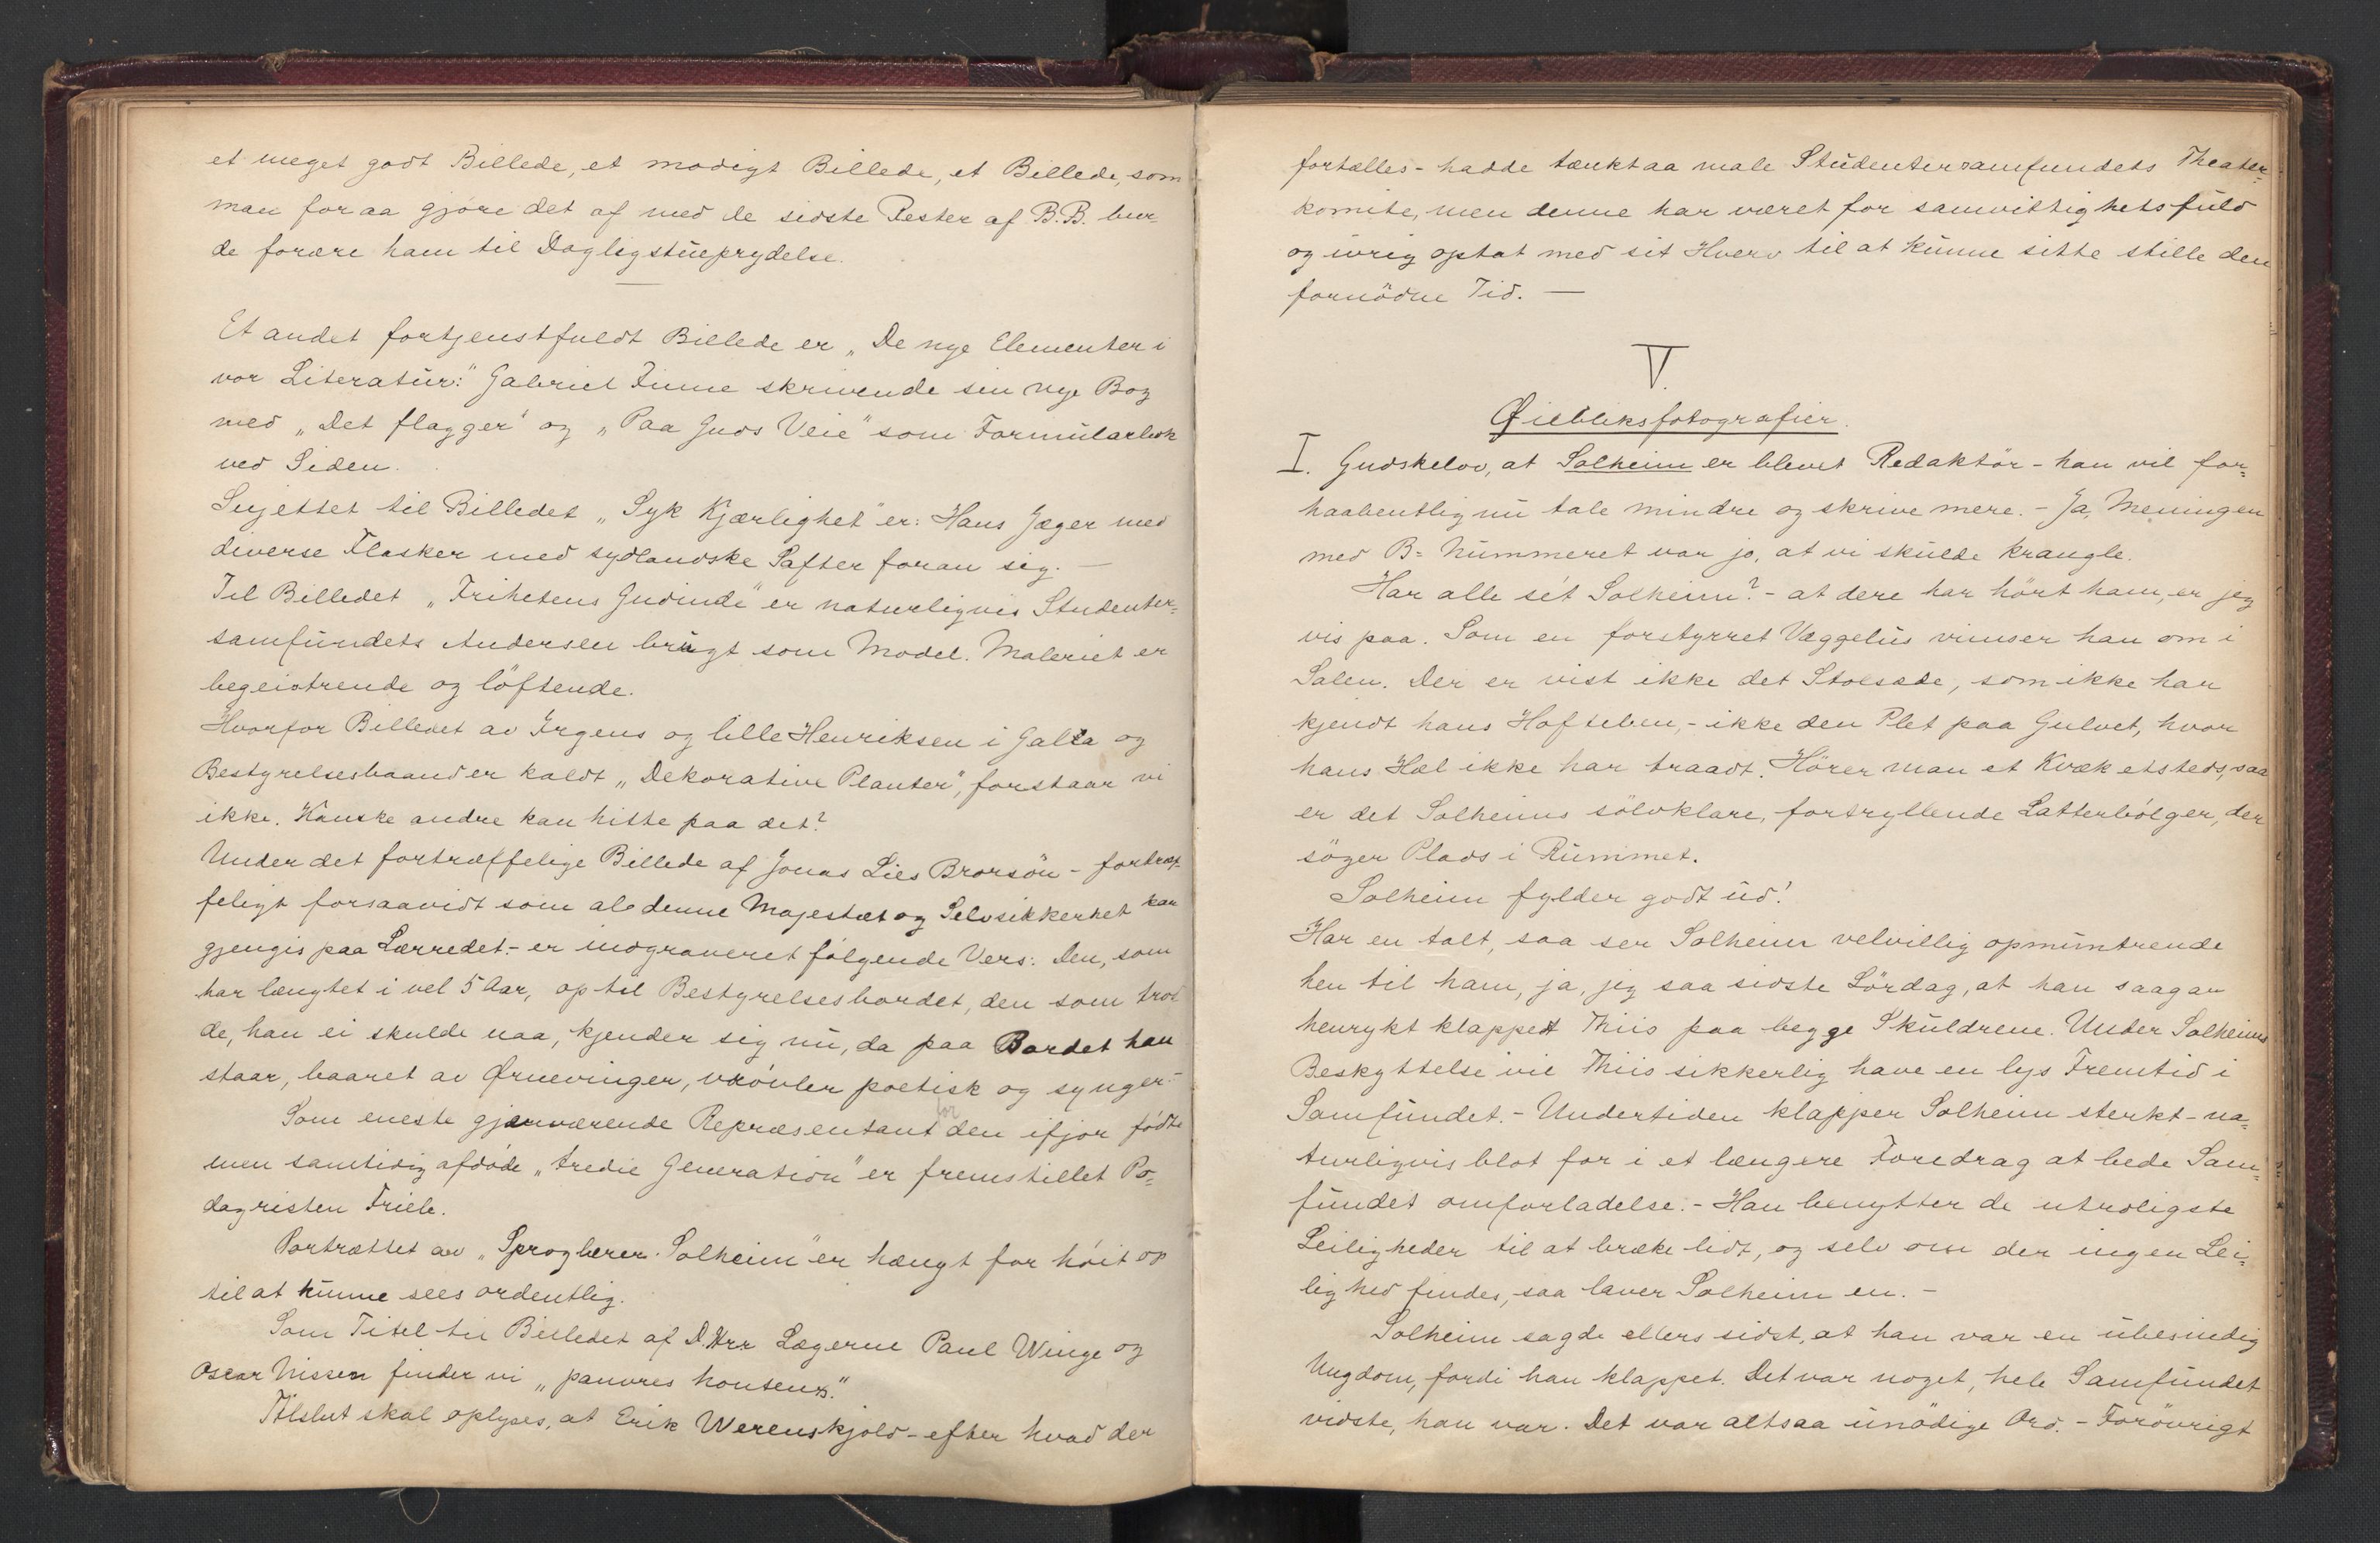 et meget godt Billede, et modigt Billede, et Billede, som
man for aa gjøre det af med de sidste Rester af B.B. bur-
de forære ham til Dagligstueprydelse.
Et andet fortjenstfuldt Billede er „De nye Elementer i
vor Literatur:" Gabriel Finne skrivende sin nye Bog
med „Det flagger" og „Paa Guds Veie" som Formularbok
ved Siden.
Sujettet til Billedet „Syk Kjærlighet" er: Hans Jæger med
diverse Flasker med sydlandske Safter foran sig. —
Til Billedet „Frihetens Gudinde" er naturligvis Studenter-
samfundets Andersen brugt som Model. Maleriet er
begeistrende og löftende.
Hvorfor Billedet av Irgens og lille Henriksen i Galla og
Bestyrelsesbaand er kaldt „Dekorative Planter", forstaar vi
ikke. Kanske andre kan hitte paa det?
Under det fortræffelige Billede af Jonas Lies Brorsön - fortræf-
feligt forsaavidt som al denne Majestæt og Selvsikkerhet kan
gjengis paa Lærredet - er indgraveret følgende Vers: Den, som
har længtet i vel 5 Aar, op til Bestyrelsesbordet, den som trod
de, han ei skulde naa, kjender sig nu, da paa Bordet han
staar, baaret av Ørnevinger, vrövler poetisk og synger. -
Som eneste gjenværende Repræsentant for den ifjor födte
men samtidig afdöde „tredie Generation" er fremstillet Po-
dagristen Friele.
Portrættet av „Sproglærer Solheim" er hængt for höit op
til at kunne sees ordentlig.
Som Titel til Billedet af D.Hrr Lægerne Paul Winge og
Oscar Nissen finder vi „pauvres honteux."
Tilslut skal oplyses, at Erik Werenskjold - efter hvad der
fortælles - hadde tænkt aa male Studentersamfundets Theater-
komite, men denne har været for samvittighetsfuld
og ivrig optat med sit Hverv til at kunne sitte stille den
fornödne Tid. —
V.
Øiebliksfotografier.
I. Gudskelov, at Solheim er blevet Redaktör - han vil for-
haabentlig nu tale mindre og skrive mere. - Ja, Meningen
med B- Nummeret var jo, at vi skulde krangle.
Har alle sét Solheim? - at dere har hört ham, er jeg
vis paa. Som en forstyrret Væggelus vimser han om i
Salen. Der er vist ikke det Stolsæde, som ikke har
kjendt hans Hofteben, - ikke den Plet paa Gulvet, hvor
hans Hæl ikke har traadt. Hörer man et Kvæk etsteds, saa
er det Solheims sölvklare, fortryllende Latterbölger, der
söger Plads i Rummet.
Solheim fylder godt ud!
Har en talt, saa ser Solheim velvillig opmuntrende
hen til ham, ja, jeg saa sidste Lördag, at han saagar
henrykt klappet Thiis paa begge Skuldrene. Under Solheims
Beskyttelse vil Thiis sikkerlig have en lys Fremtid i
Samfundet. - Undertiden klapper Solheim sterkt - na-
turligvis blot for i et længere Foredrag at bede Sam-
fundet om forladelse. - Han benytter de utroligste
Leiligheder til at bræke lidt, og selv om der ingen Lei-
lighed findes, saa laver Solheim en. -
Solheim sagde ellers sidst, at han var en ubesindig
Ungdom, fordi han klappet. Det var noget, hele Samfundet
vidste, han var. Det var altsaa unödige Ord. - Forövrigt